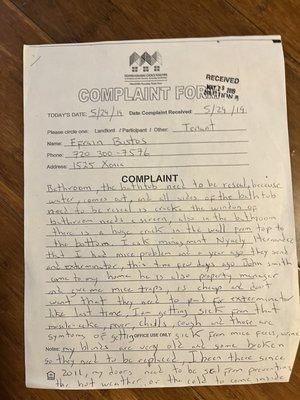 COMPLAINT FORM
RECEIVED
TODAY'S DATE: 5/24/19 Date Complaint Received: 5/29/19
Please circle one: Landlord / Participant / Other: Tenant
Name: Efrain Bustos
Phone: 720 300-7576
Address: 1525 Xenia
COMPLAINT
Bathroom, the bathtub need to be reseal, because
water, comes out, and all sides of the bathtub
need to be reseal is crack the window of
bathroom need a screen, also in the bathroom
there is a huge crack in the wall from top to
the bottom. I ask management Nynely Hernandez
that I had mice problem and a year ago they send
and exterminator, this time few days ago John Smith
came to my home he is also property manager
and give me mice traps, is cheap and don't
want that they need to paid for exterminator
like last time, I am getting sick from that
muscle-ake, fever, chills, cough and those are
symtoms of getting sick from mice feces, urine
OFFICE USE ONLY
Notes: my blinds are very old and some broken
so they need to be replaced, I been there since
2011, my doors need to be seal from preventing
the hot weather, or the cold to come inside